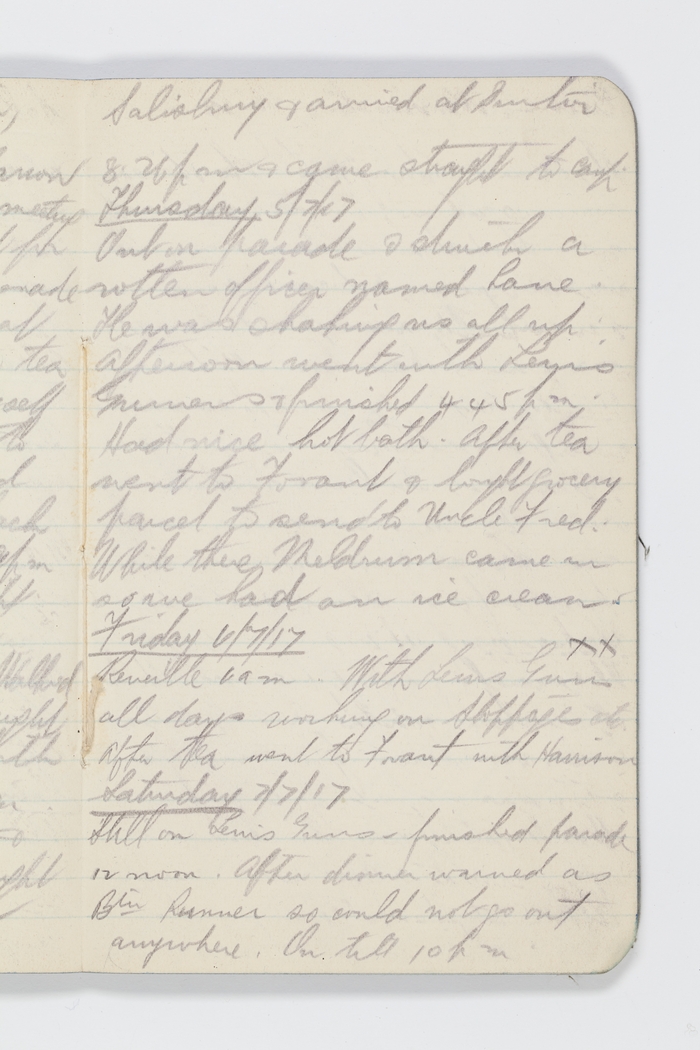 Salisbury & arrived at Dinton
8.26 pm & came straight to camp
Thursday 5/7/17
Out on parade & struck a
rotten officer named Lane.
He was shaking us all up.
Afternoon went with Lewis
Gunners & finished 4 45 pm.
Had nice hot bath. After tea
went to Fovant & bought grocery
parcel to send to Uncle Fred.
While there Meldrum came in
so we had an ice cream.
Friday 6/7/17
XX
Reveille 6 am. With Lewis Guns
all day working on stoppages etc
After tea went to Fovant with Harrison
Saturday 7/7/17
Still on Lewis Guns - finished parade
12 noon. After dinner warned as
Btn Runner so could not go out
anywhere. On till 10 pm
tea
to